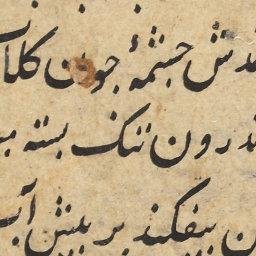 ندش چشمهٔ جون کلاب
ندرون تنک بسته می
ن بیفکند بر پیش آب